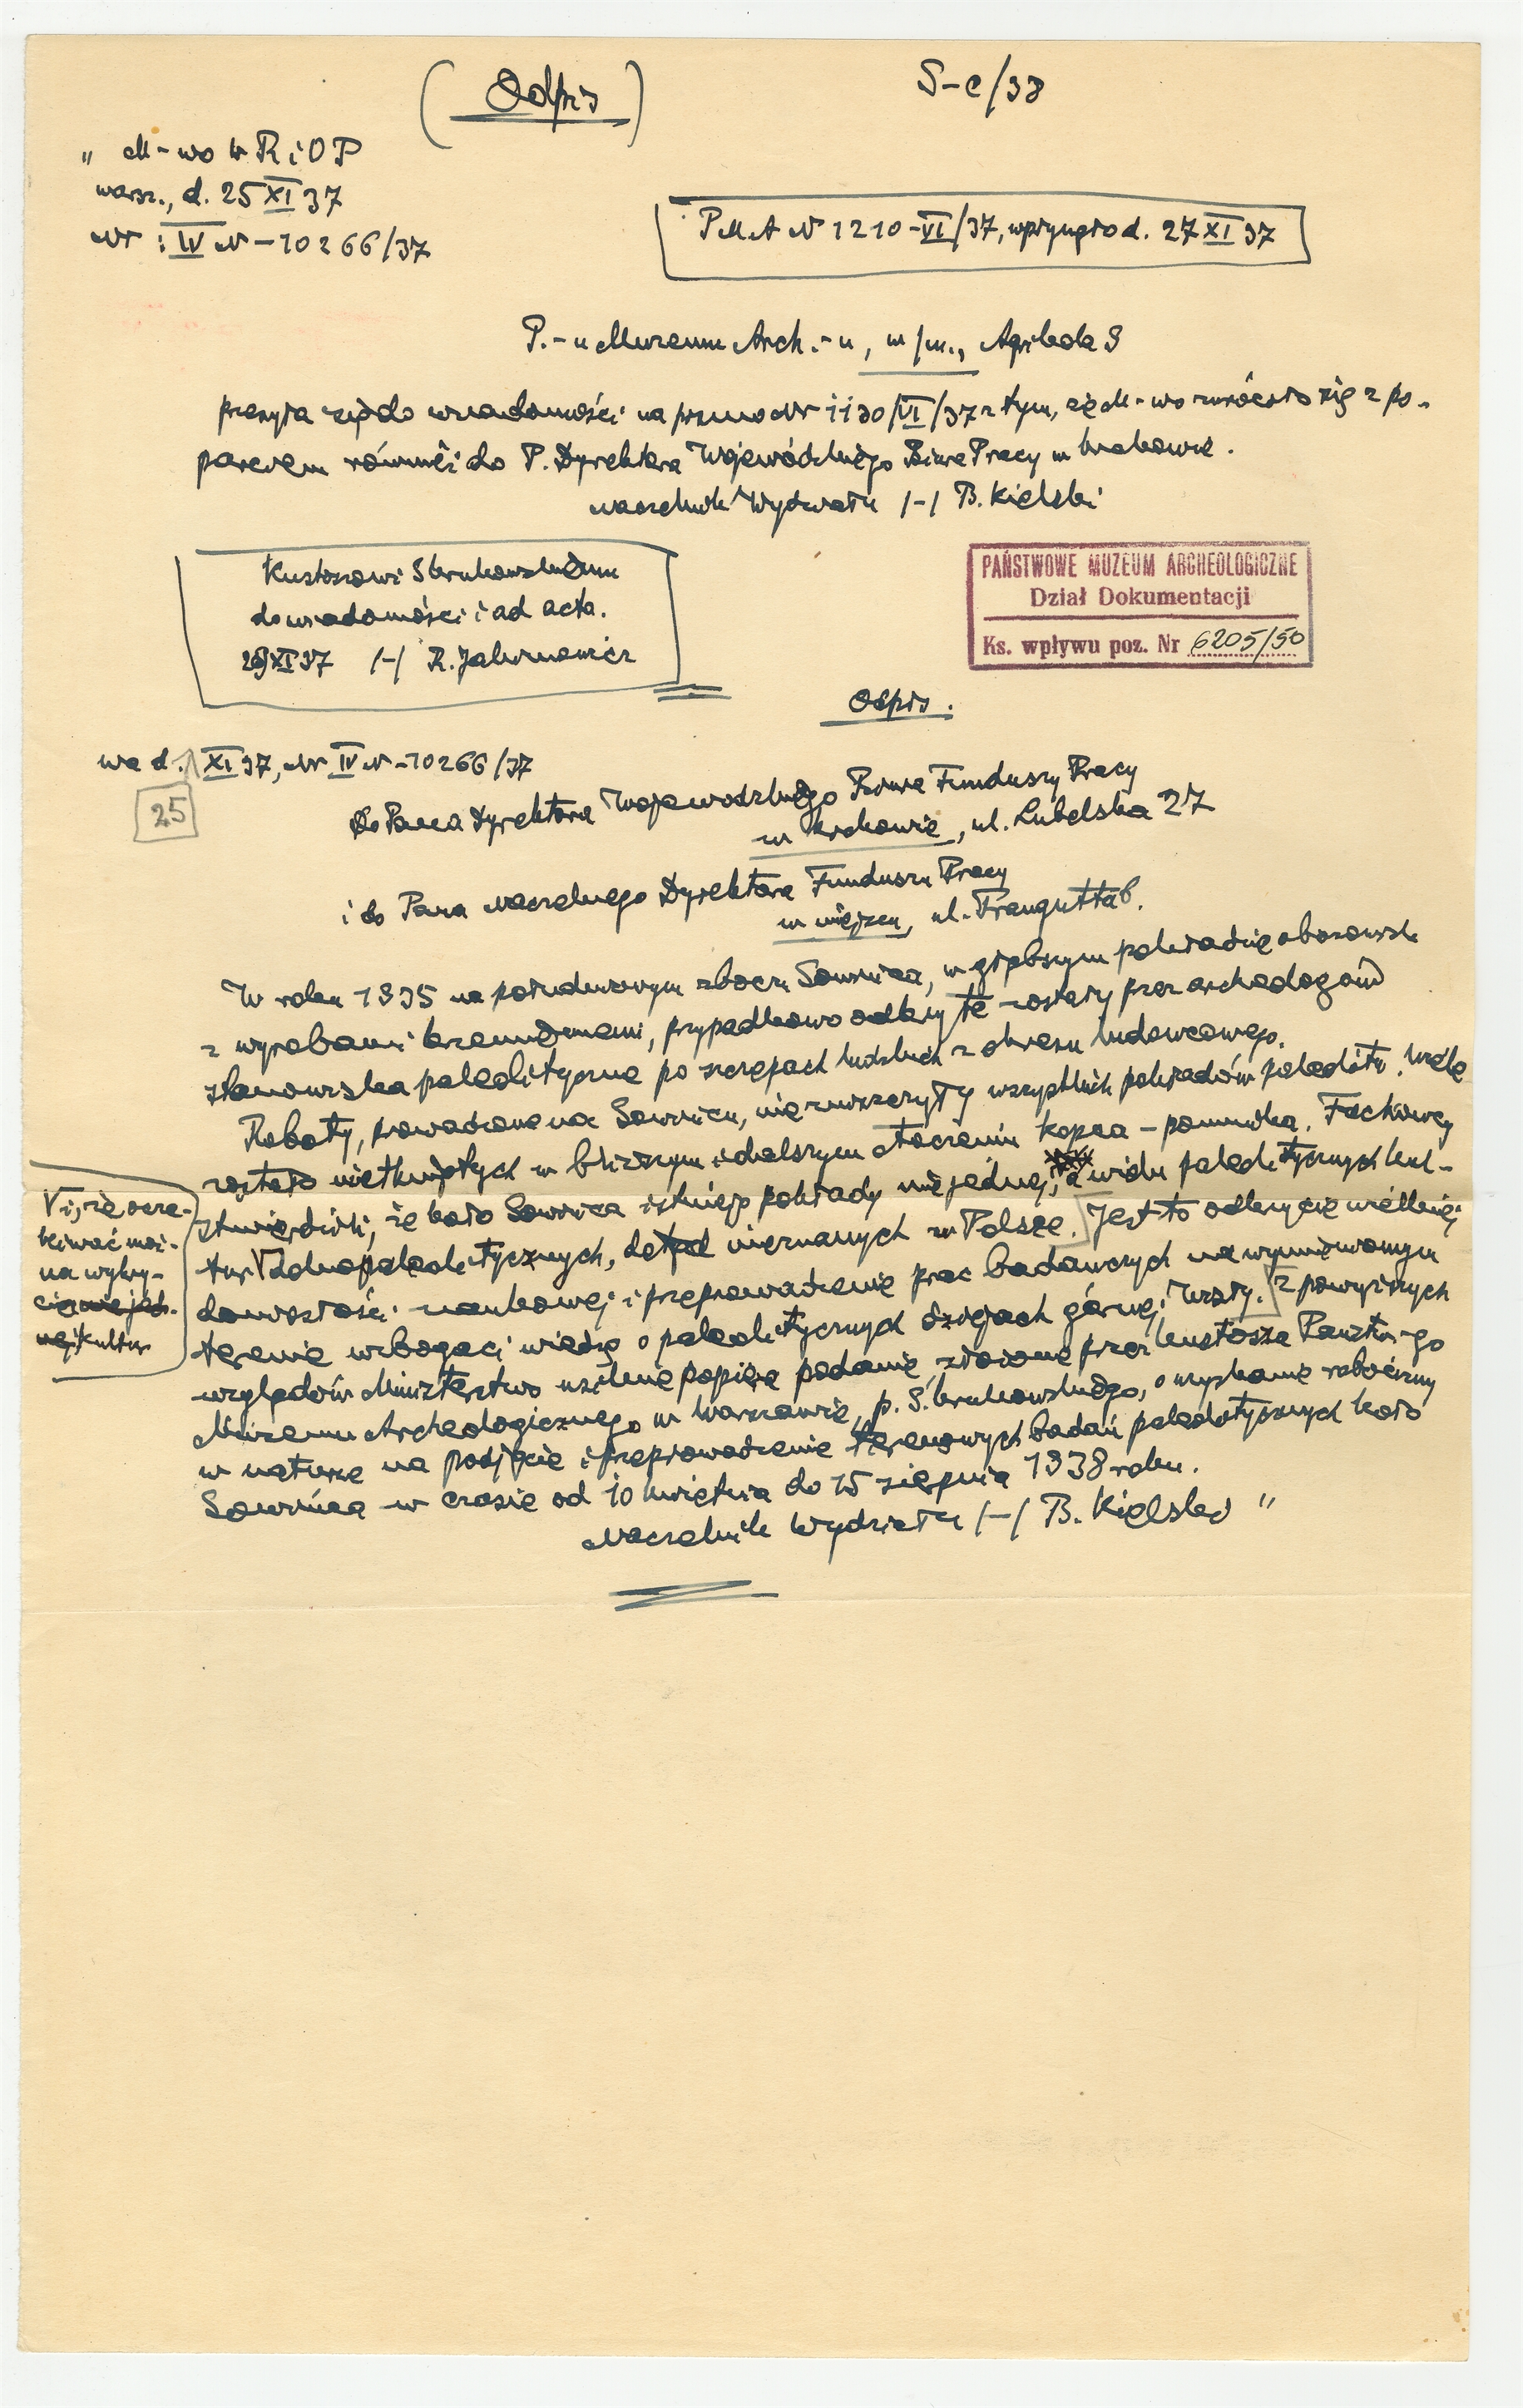 (Odpis)
S-c/38
" M-wo W R i O P
warsz., d. 25 XI 37
Nr : IV N-10266/37
P M A N 1210-VI/37, wpłynęło d. 27 XI 37
P.-u Muzeum Arch.-u, w/m., Agrikola 9
przesyła się do wiadomości na pismo Nr 1130/VI/37 z tym, że M-wo zwróciło się z po-
parciem również do P. Dyrektora Wojewódzkiego Biura Pracy w Krakowie.
Naczelnik Wydziału /-/ B. Kielski
Kustoszowi S Krukowskiemu
do wiadomości i ad acta.
29 XI 37 /-/ R. Jakimowicz
PAŃSTWOWE MUZEUM ARCHEOLOGICZNE
Dział Dokumentacji
Ks. wpływu poz. Nr 6205/50
Odpis.
wa d. XI 37, Nr IV N-10266/37
25
Do Pana Dyrektora Wojewodzkiego Biura Funduszu Pracy
w Krakowie, ul. Lubelska 27
i do Pana Naczelnego Dyrektora Funduszu Pracy
w miejscu, ul. Traugutta 6.
W roku 1935 na południowym zboczu Sowińca, w głębszym pokładzie obozowisk
z wyrobami krzemiennemi, przypadkowo odkryte zostały przez archeologów
stanowiska paleolityczne po szczepach ludzkich z okresu lodowcowego.
Roboty, prowadzone na Sowińcu, nie zniszczyły wszystkich pokładów paleolitu. Wiele
zostało nietkniętych w bliższym i dalszym otoczeniu kopca-pomnika. Fachowcy
stwierdzili, że koło Sowińca istnieją pokłady nie jednej, a wielu paleolitycznych kul-
tur V dolnopaleolitycznych, dotąd nieznanych w Polsce. Jest to odkrycie wielkiej
V i, że ocze-
kiwać moż-
na wykry-
cia nie jed-
nej kultur
doniosłości naukowej i przeprowadzenie prac badawczych na wymienionym
terenie wzbogaci wiedzę o paleolitycznych dziejach górnej Wisły. Z powyższych
względów Ministerstwo usilnie popiera podanie, złożone przez kustosza Państw-go
Muzeum Archeologicznego w Warszawie, p. S. Krukowskiego, o uzyskanie robocizny
w naturze na podjęcie i przeprowadzenie terenowych badań paleolitycznych koło
Sowińca w czasie od 10 kwietnia do 15 sierpnia 1938 roku.
Naczelnik Wydziału /-/ B. Kielski "